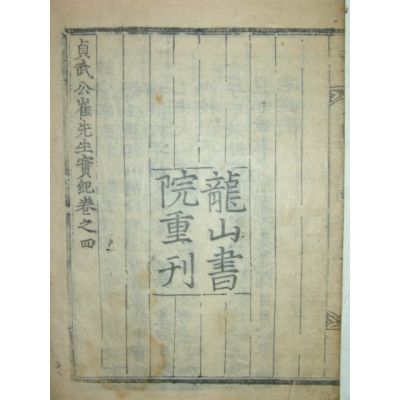 龍山書
院重刊
貞武公崔先生實紀卷之四